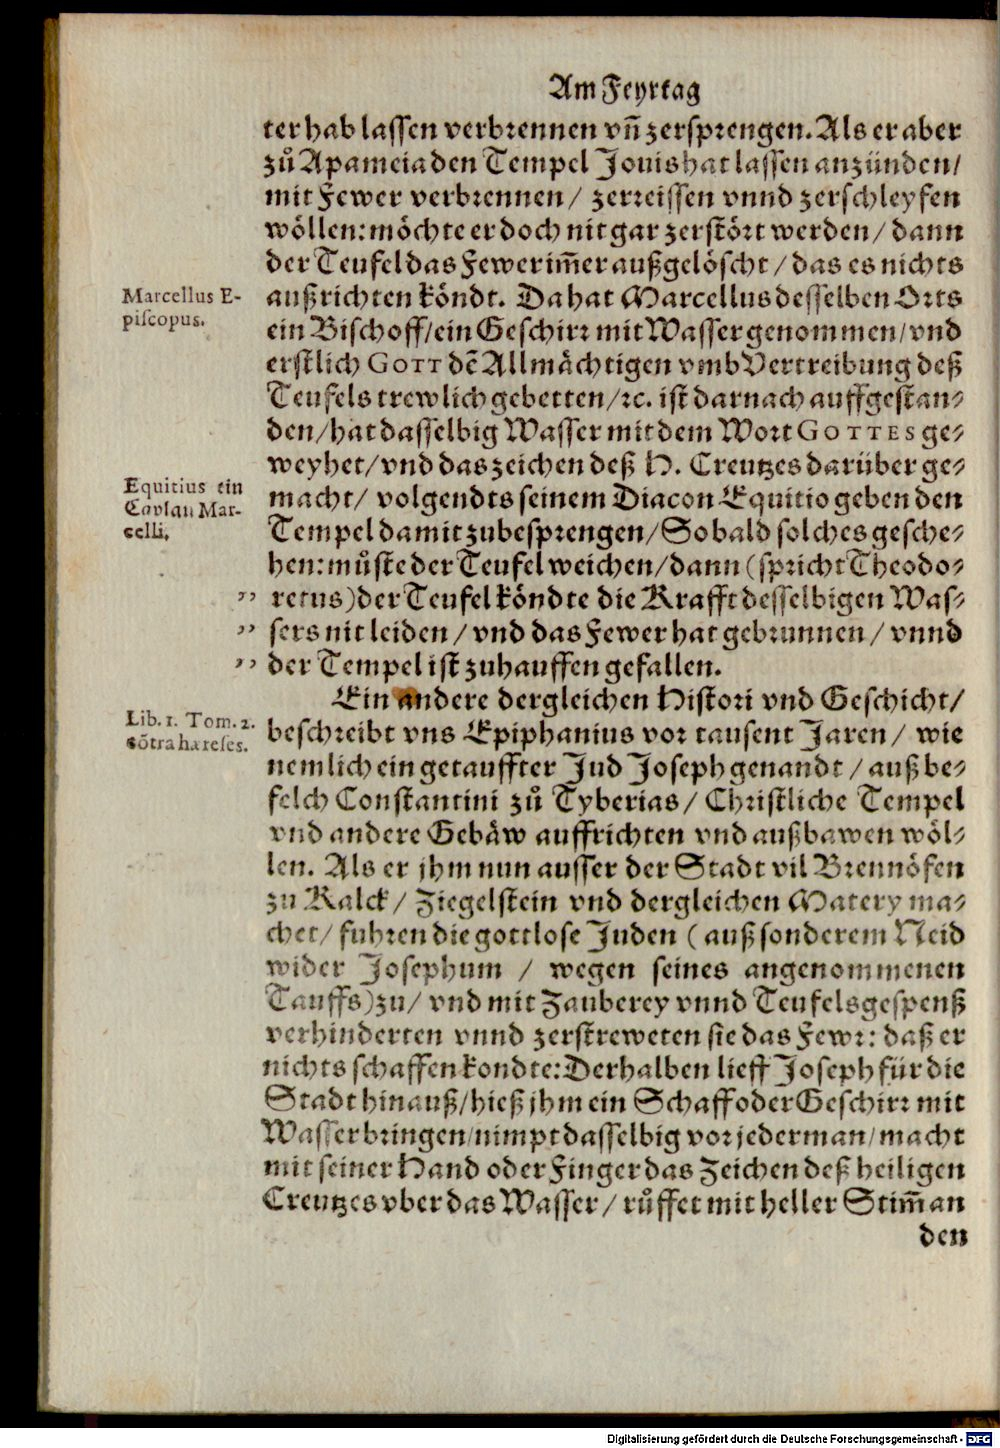 Am Feyrtag
ter hab lassen verbrennen vñ zersprengen. Als er aber
zů Apameia den Tempel Jouis hat lassen anzünden/
mit Fewer verbrennen/ zerreissen vnnd zerschleyfen
wöllen: möchte er doch nit gar zerstört werden/ dann
der Teufel das Fewer im̃er außgelöscht/ das es nichts
Marcellus E-
piscopus.
außrichten köndt. Da hat Marcellus desselben Orts
ein Bischoff/ ein Geschirr mit Wasser genommen/ vnd
erstlich GOTT dẽ Allmächtigen vmb Vertreibung deß
Teufels trewlich gebetten/ ꝛc. ist darnach auffgestan-
den/ hat dasselbig Wasser mit dem Wort GOTTES ge-
weyhet/ vnd das zeichen deß H. Creutzes darüber ge-
Equitius ein
Caplan Mar-
celli.
macht/ volgendts seinem Diacon Equitio geben den
Tempel damit zubesprengen/ So bald solches gesche-
hen: můste der Teufel weichen/ dann (spricht Theodo-
,, retus) der Teufel köndte die Krafft desselbigen Was-
,, sers nit leiden/ vnd das Fewer hat gebrunnen/ vnnd
,, der Tempel ist zuhauffen gefallen.
Ein andere dergleichen Histori vnd Geschicht/
Lib. 1. Tom. 2.
cõtra hæreses.
beschreibt vns Epiphanius vor tausent Jaren/ wie
nemlich ein getauffter Jud Joseph genandt/ auß be-
felch Constantini zů Tyberias/ Christliche Tempel
vnd andere Gebäw auffrichten vnd außbawen wöl-
len. Als er jhm nun ausser der Stadt vil Brennöfen
zu Kalck/ Ziegelstein vnd dergleichen Matery ma-
chet/ fuhren die gottlose Juden (auß sonderem Neid
wider Josephum / wegen seines angenommenen
Tauffs) zu/ vnd mit Zauberey vnnd Teufelsgespenß
verhinderten vnnd zerstreweten sie das Fewr: daß er
nichts schaffen kondte: Derhalben lieff Joseph für die
Stadt hinauß/ hieß jhm ein Schaff oder Geschirr mit
Wasser bringen/ nimpt dasselbig vor jederman/ macht
mit seiner Hand oder Finger das Zeichen deß heiligen
Creutzes vber das Wasser/ růffet mit heller Stim̃ an
den
Digitalisierung gefördert durch die Deutsche Forschungsgemeinschaft - DFG